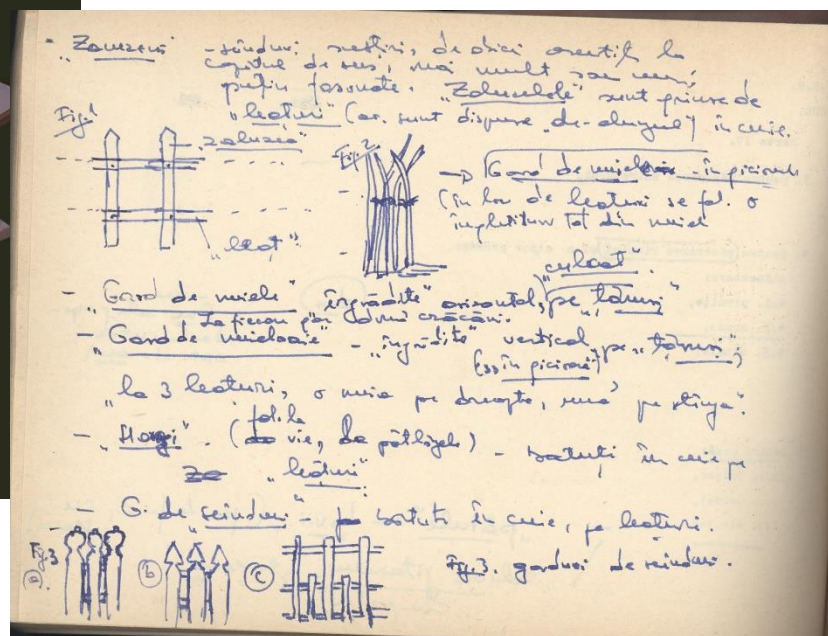 - „Zauzeni" - scînduri subțiri, de obicei ascuțit la
capătul de sus, mai mult sau mai
puțin fasonate. „Zaluzelele" sunt prinse de
„leațuri" (ce sunt dispuse „de-alungul") în cuie.
Fig 1
„zaluzea"
„leaț".
Fig 2
→ Gard de nuiele în picioare
(în loc de leațuri se fol. o
împletitură tot din nuiele
culcat.
- „Gard de nuiele", „îngrădite" orizontal, pe „țăruși"
La fiecare par
- „Gard de nuiele" - „îngrădite" vertical, pe „țăruși",
în picioare)
„la 3 leațuri, o nuia pe dreapta, una pe stînga".
- „Haragi". (fol. la vie, pătlăgele) - bătuți în cuie pe
„leațuri".
- G. de „scînduri" - bătute în cuie, pe leațuri.
Fig. 3
a b c
Fig. 3. garduri de scînduri.